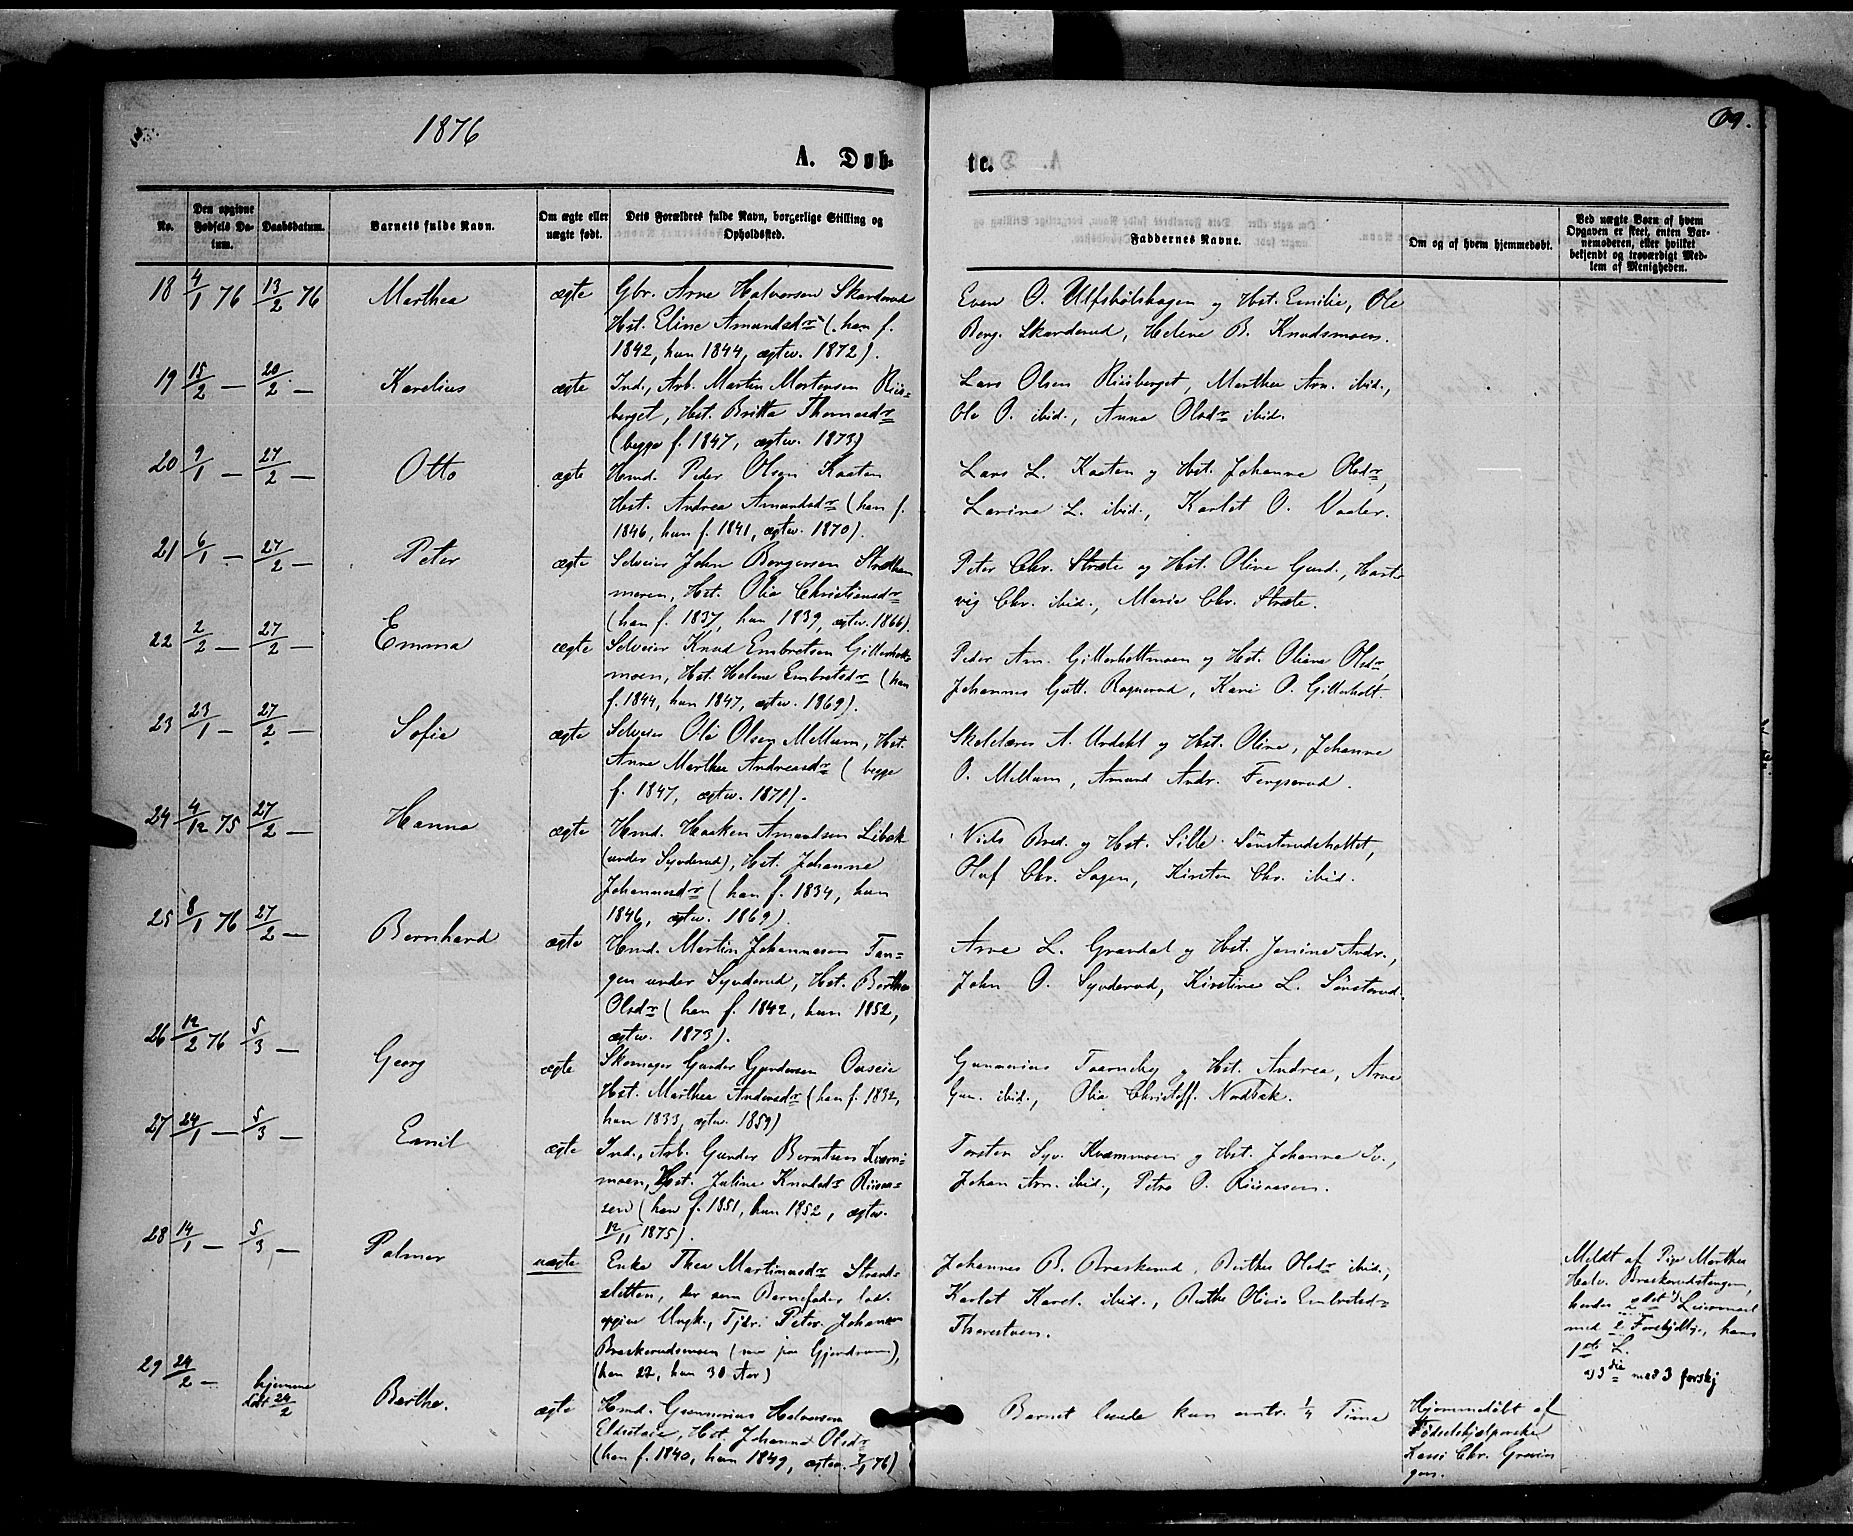 1876
69.
A. Døb-
te.
No.
Den opgivne Fødsels Da-
tum.
Daabsdatum.
Barnets fulde Navn.
Om ægte eller
uægte født.
Dets Forældres fulde Navn, borgerlige Stilling og
Opholdssted.
Faddernes Navne.
Om og af hvem hjemmedøbt.
Ved uægte Børn af hvem
Opgaven er skeet, enten Bar-
nemoderen, eller hvilket
bekjendt og troværdigt Med-
lem af Menigheden.
18 4/1 76 13/2 76 Marthea ægte
Gbr. Arne Halvorsen Skarderud
Hst. Eline Amundsdr (han f.
1842, hun 1844, ægtev. 1872).
Even O. Ulfsbølshagen og Hst. Emilie, Ole
Berg. Skarderud, Helene B. Knudsmoen.
19 15/2 — 20/2 — Karelius ægte
Ind., Arb. Martin Mortensen Riis-
berget, Hst. Britta Thomasdr
(begge f. 1847, ægtev. 1873)
Lars Olsen Riisberget, Marthea Arn. ibid.,
Ole O. ibid., Anna Olsdr ibid.
20 9/1 — 27/2 — Otto ægte
Hmd. Peder Olsen Kaaten
Hst. Andrea Amundsdr (han f.
1846, hun f. 1841, ægtev. 1870).
Lars L. Kaaten og Hst. Johanne Olsdr,
Lavina L. ibid., Karlot O. Vaaler.
21 6/1 — 27/2 — Peter ægte
Selveier John Borgersen Strætham
meren, Hst. Olia Christiansdr
(han f. 1837, hun 1839, ægtev. 1866).
Peter Chr. Stræte og Hst. Oline Gund., Hart-
vig Chr. ibid., Marie Chr. Stræte.
22 2/2 — 27/2 — Emma ægte
Selveier Knud Embretsen Gitterholt-
moen, Hst. Helene Embretsdr (han
f. 1844, hun 1847, ægtev. 1869).
Peder Am. Gitterholtmoen og Hst. Oliane Olsdr,
Johannes Gutt. Rognerud, Kari O. Gitterholt.
23 23/1 — 27/2 — Sofie ægte
Selveier Ole Olsen Mellum, Hst.
Anne Marthea Andreasdr (begge
f. 1847, ægtev. 1871).
Skolelærer A. Urdahl og Hst. Oline, Johanne
O. Mellum, Amund Andr. Fergserud.
24 4/12 75 27/2 — Hanna ægte
Hmd. Haaken Amundsen Libak
(under Synderud), Hst. Johanne
Johannesdr (han f. 1834, hun
1846, ægtev. 1869).
Niels Bred. og Hst. Sille Sønsterudsholtet,
Oluf Chr. Sagen, Kirsten Chr. ibid.
25 8/1 76 27/2 — Bernhard ægte
Hmd. Martin Johannesen Tan-
gen under Synderud, Hst. Berthe
Olsdr (han f. 1842, hun 1852,
ægtev. 1873).
Arne L. Grandal og Hst. Jenine Andr.,
John O. Synderud, Kirstine L. Sønsterud.
26 12/2 76 5/3 — Georg ægte
Skomager Gunder Gundersen Onseie
Hst. Marthea Andersdr (han f. 1832,
hun 1833, ægtev. 1859)
Gunnerius Taarneby og Hst. Andrea, Arne
Gun. ibid., Olia Christoff. Nordbak.
27 24/1 — 5/3 — Emil ægte
Ind., Arb. Gunder Berntsen Kværn-
moen, Hst. Juline Knudsdr Riisaa-
sen (han f. 1851, hun 1852, ægtev.
12/11 1875).
Torsten Syv. Kvæmmoen og Hst. Johanne Iv.,
Johan Arn. ibid., Petra O. Riisaasen.
28 14/1 — 5/3 — Palmer uægte
Enke Thea Martinusdr Strand-
sletten, der som Barnefader lod
opgive Ungk., Tjdr. Peter Johans.
Braskerudsmoen (nu paa Gjerdrum),
(han 22, hun 30 Aar)
Johannes B. Braskerud, Berthea Olsdr ibid.,
Karlot Karel. ibid., Berthe Olivia Embretsdr
Thorestuen.
Meldt af Pige Marthea
Halv. Braskerudstangen,
hendes 2det Leiermaal
med 2 Forskjellige, hans
1ste L.
og 3die med 3 forskj
29 24/2 — hjemme
døbt 24/2 Berthe. ægte
Hmd. Gunnerius Halvorsen
Eldstaie, Hst. Johanne Olsdr
(han f. 1840, hun 1849, ægtev. 7/1 76)
Barnet levede kun omtr. 1/4 Time
Hjemmedøbt af
Fødselshjælperske
Kari Chr. Gravin
gen.